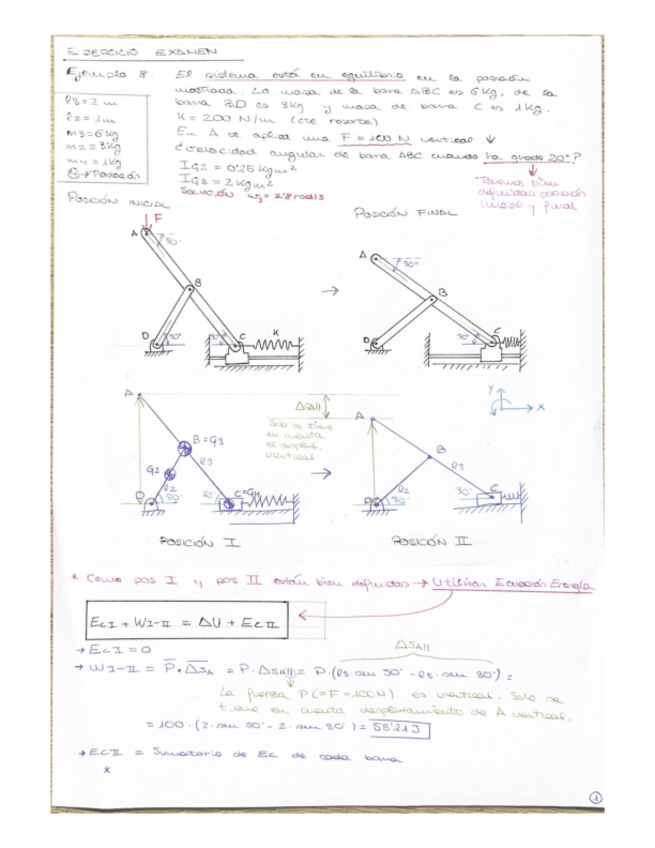 EJERCICIO EXAMEN
Ejemplo 8: El sistema está en equilibrio en la posición
mostrada. La masa de la barra ABC es 6 Kg, de la
barra BD es 3Kg y masa de barra C es 1Kg.
K = 200 N/m (cte resorte)
En A se aplica una F = 100 N vertical ↓
¿velocidad angular de barra ABC cuando ha girado 20°?
IG2 = 0'25 Kgm²
IG3 = 2 Kgm²
SOLUCIÓN ω3 = 2'8 rad/s
l3 = 2 m
l2 = 1m
m3 = 6Kg
m2 = 3Kg
m4 = 1Kg
→ Traslación
Tenemos bien
definidas posición
inicial y final
POSICIÓN INICIAL
POSICIÓN FINAL
F
A
50°
B
D
C
K
A
30°
B
D
30°
C
Y
X
A
ΔSAII
Solo se tiene
en cuenta
el desplaz.
vertical
B=G3
G2
l3
l2
D
A
B
l3
l2
D
30°
30°
C
POSICIÓN I
POSICIÓN II
* Como pos I y pos II están bien definidas → Utilizar Ecuación Energía
EcI + WI-II = ΔU + EcII
→ EcI = 0
ΔSAII
→ WI-II = P · ΔSA = P · ΔSAII = P·(l3·sen 50° - l3·sen 30°) =
La fuerza P (=F=100N) es vertical. Solo se
tiene en cuenta desplazamiento de A vertical.
= 100 · (2·sen 50° - 2·sen 30°) = 53'21J
→ EcII = Sumatorio de Ec de cada barra
*
1